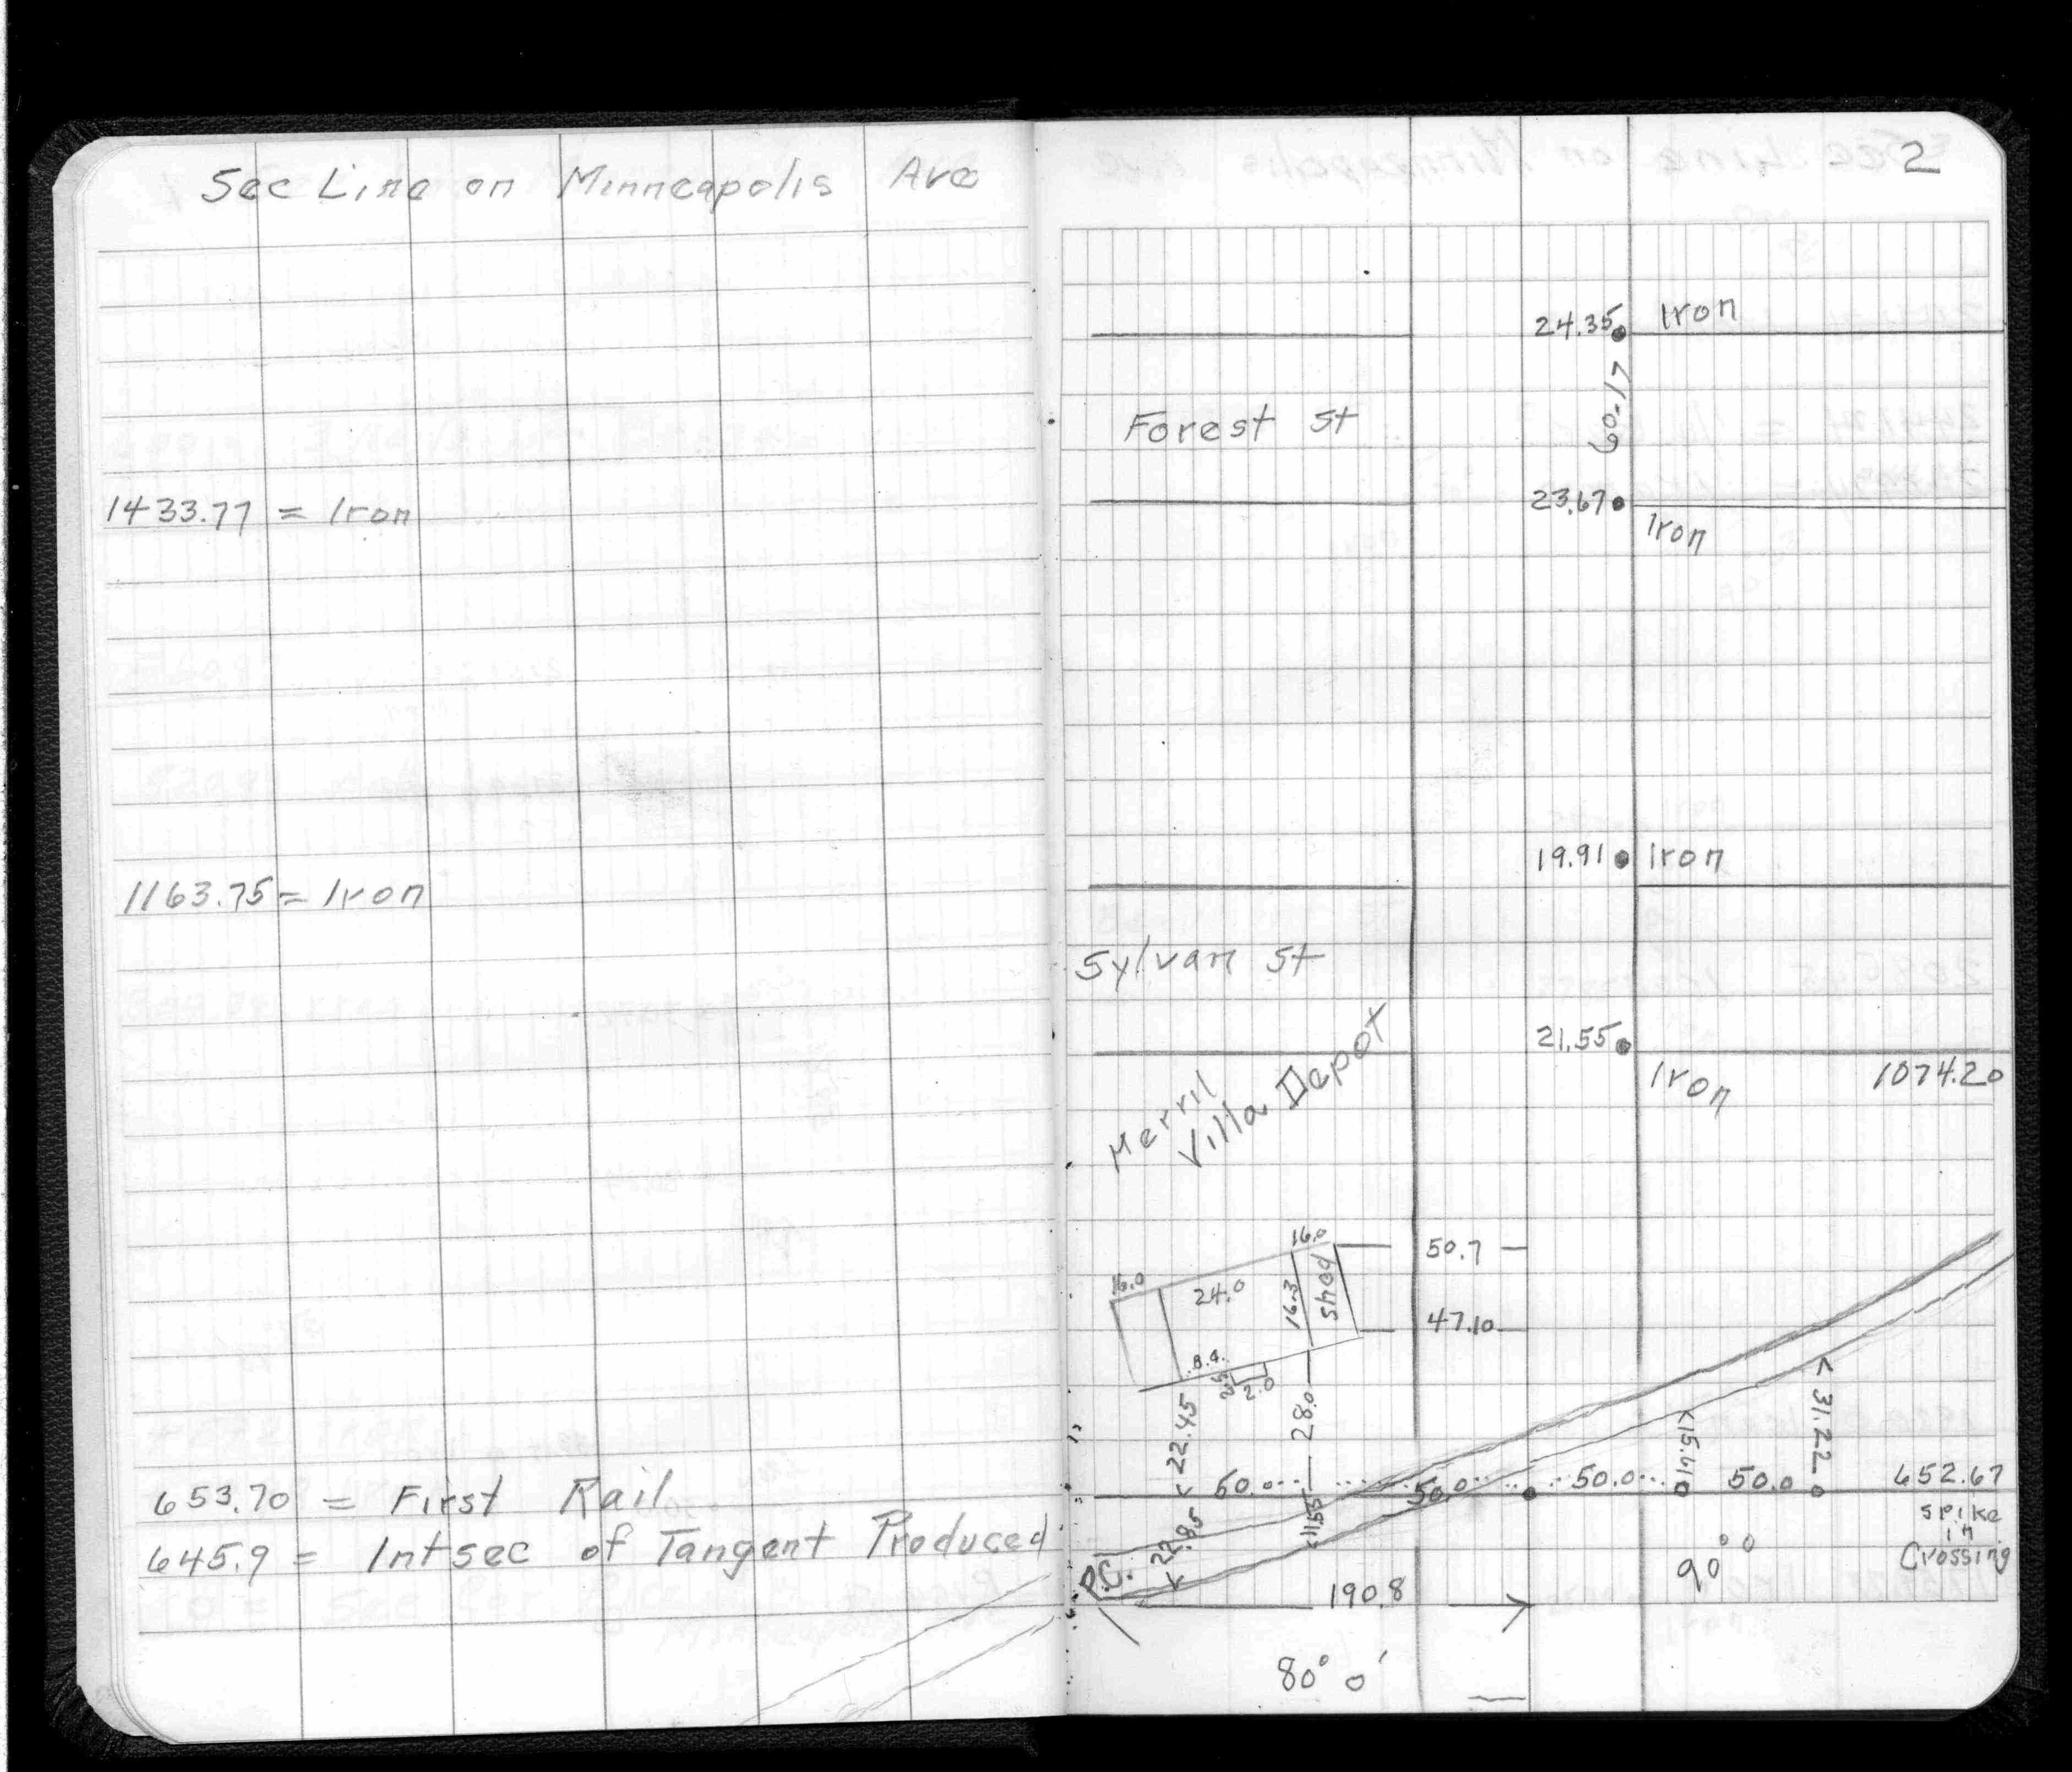 Sec Line on Minneapolis Ave
1433.77 = Iron
1163.75 = Iron
653.70 = First Rail
645.9 = Intsec of Tangent Produced
2
24.35 Iron
60.17
Forest St
23.67
Iron
19.91 Iron
Sylvan St
21.55
Iron 1074.20
Merril
Villa Depot
16.0
50.7
16.0
24.0
16.3
Shed
47.10
8.4
2.5
2.0
22.45
28.0
31.22
15.40
50.0 50.0 50.0 50.0 652.67
spike
in
Crossing
22.85
11.55
90° 0
P.C.
190.8
80° 0'